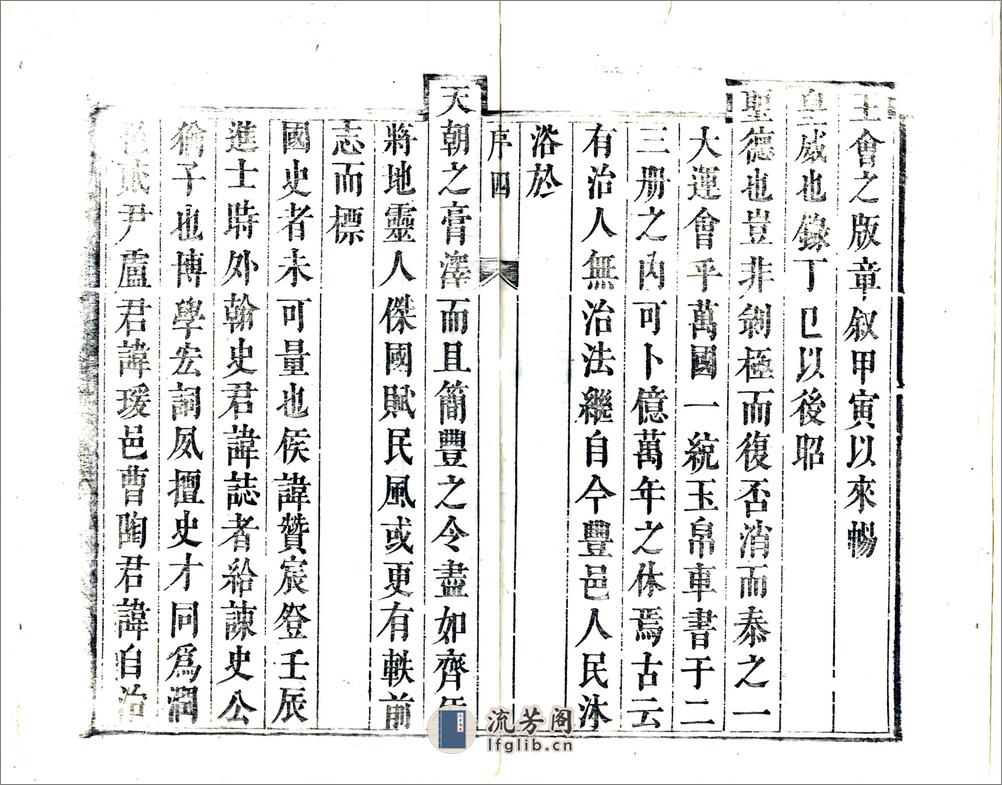 王會之版章叙甲寅以來暢
皇威也錄丁巳以後昭
聖德也豈非剝極而復否消而泰之一
大運會乎萬國一統玉帛車書于二
三册之內可卜億萬年之休焉古云
有治人無治法繼自今豐邑人民沐
浴於
序四
天朝之膏澤而且簡豐之令盡如齊
將地靈人傑國賦民風或更有軼前
志而標
國史者未可量也侯諱贊宸登壬辰
進士時外翰史君諱誌者給諫史公
猶子也博學宏詞夙擅史才同為潤
貳尹盧君諱瑗邑曹陶君諱自治
流芳阁
lfglib.cn